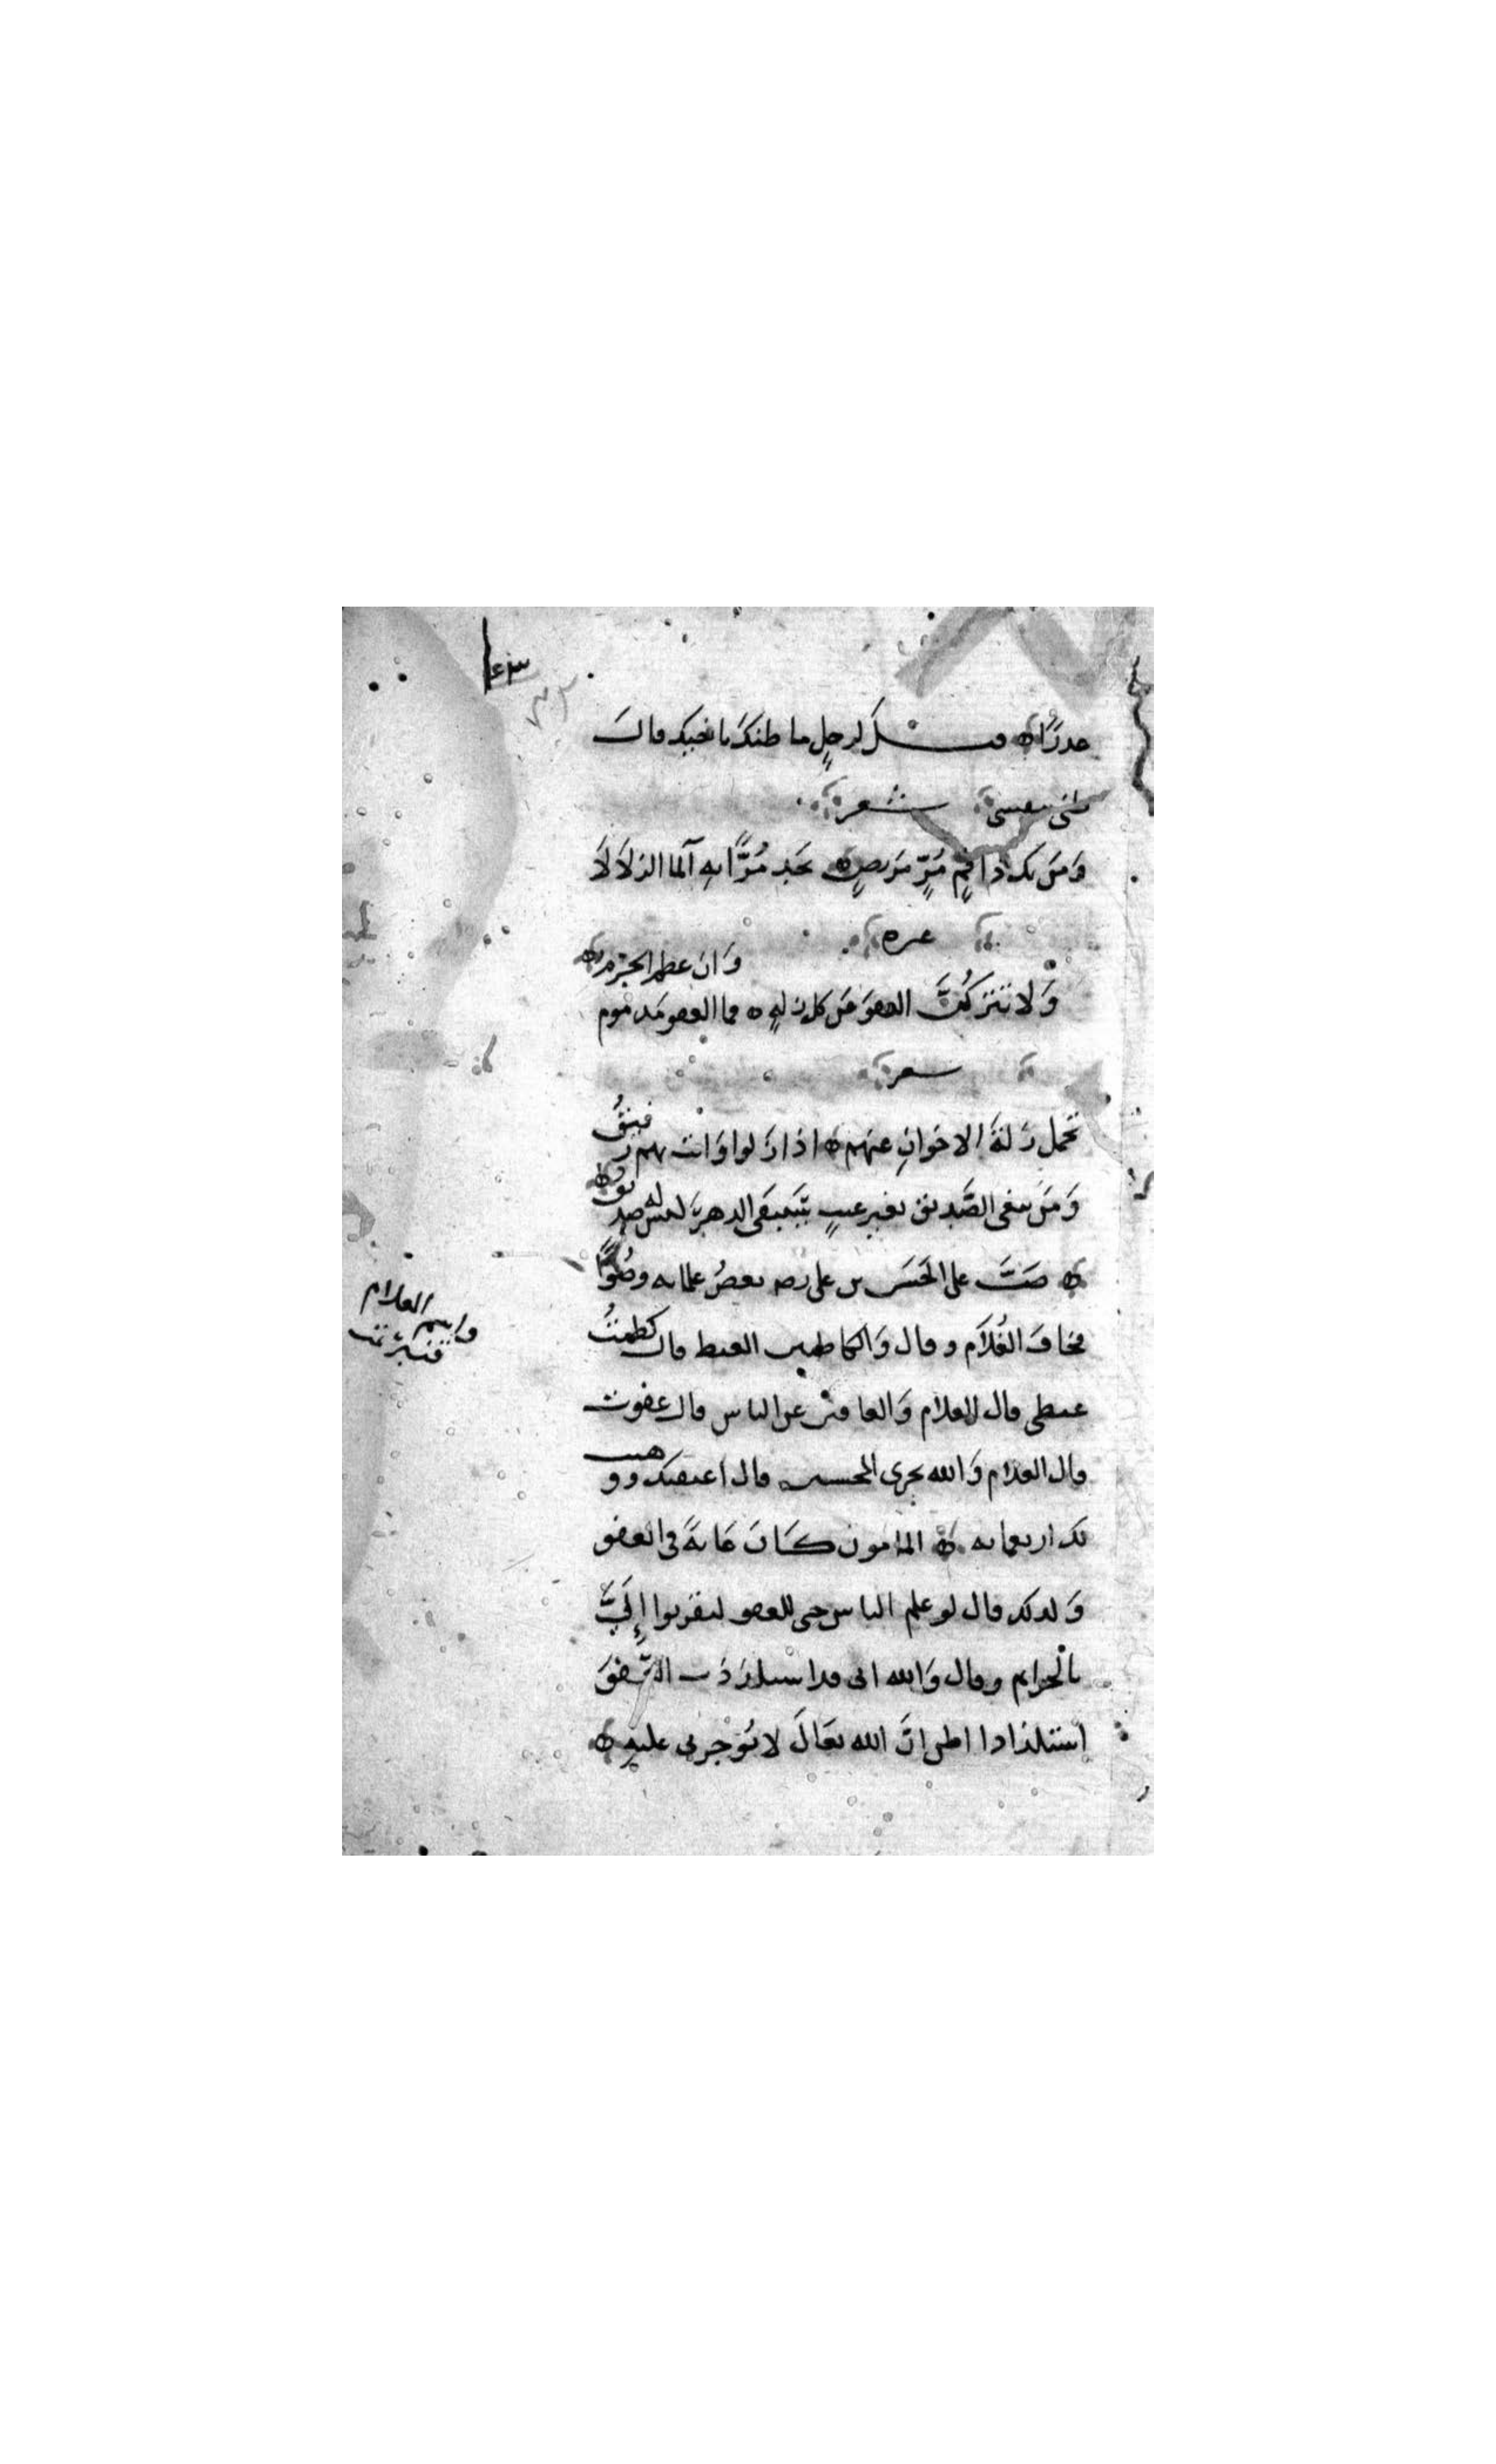 عذرًا قيل لرجل ما ظنك باخيك قال
ظنى بنفسى شعر
وَمَن يك ذا فمٍ مُرٍّ مَريضٍ يَجد مُرًّا به آلما الزلالَا
غيره
وَلا تتركَنَّ العفوَ عَن كل زلةٍ فما العفو مَذموم وَان عظم الجرم
شعر
تحمل زلةَ الاخوانِ عنهم اذا زلوا وَانت بهم رفيقُ
وَمَن يبغى الصَّديق بغير عيبٍ سَيَبقى الدهرَ ليس له صديق
صَبَّ على الحَسَن بن على رضه بعضُ غلمانه وضُوًا
فخافَ الغُلَام وقال وَالكاظمين الغيظ قال كظمتُ
غيظى قال الغلام وَالعافين عن الناس قال عفوت
قال الغلام وَالله يحب المحسنين قال اعتقتك ووهبت
لك اربعمايه المامون كَانَ غايةً فى العفو
وَلذلك قال لو علم الناس حبى للعفو لتقربوا إلَىَّ
بالجرايم وقال وَالله انى قد استلذذت العفوَ
استلذاذا اظن انَّ الله تعَالَى لا يُوجرنى عليهِ
واسم الغلام
قنبر